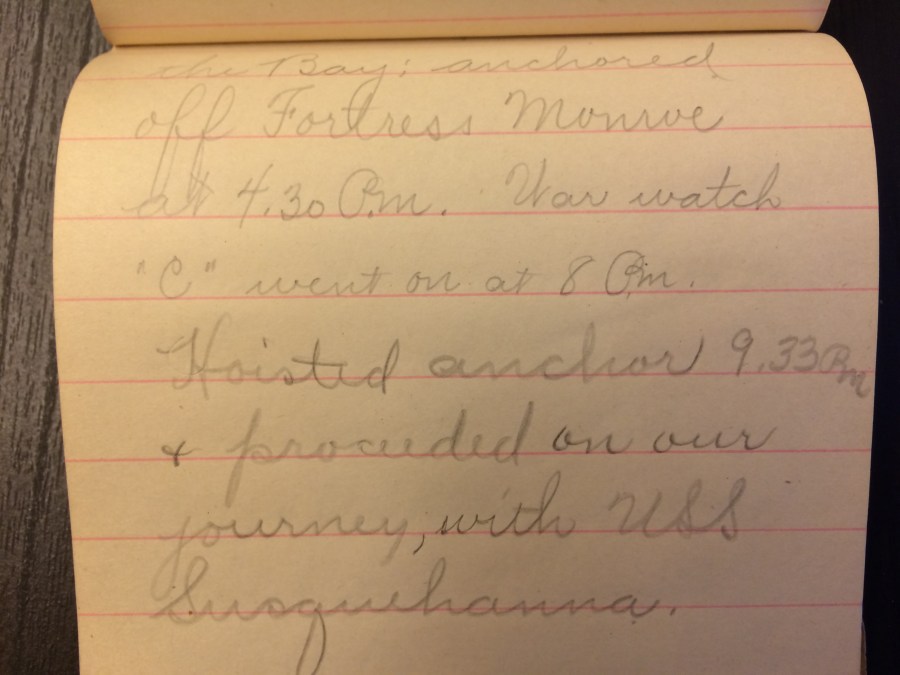 the Bay; anchored
off Fortress Monroe
at 4.30 P.m. War watch
"C" went on at 8 P.m.
Hoisted anchor 9.33 Pm
+ proceeded on our
journey, with USS
Susquehanna.